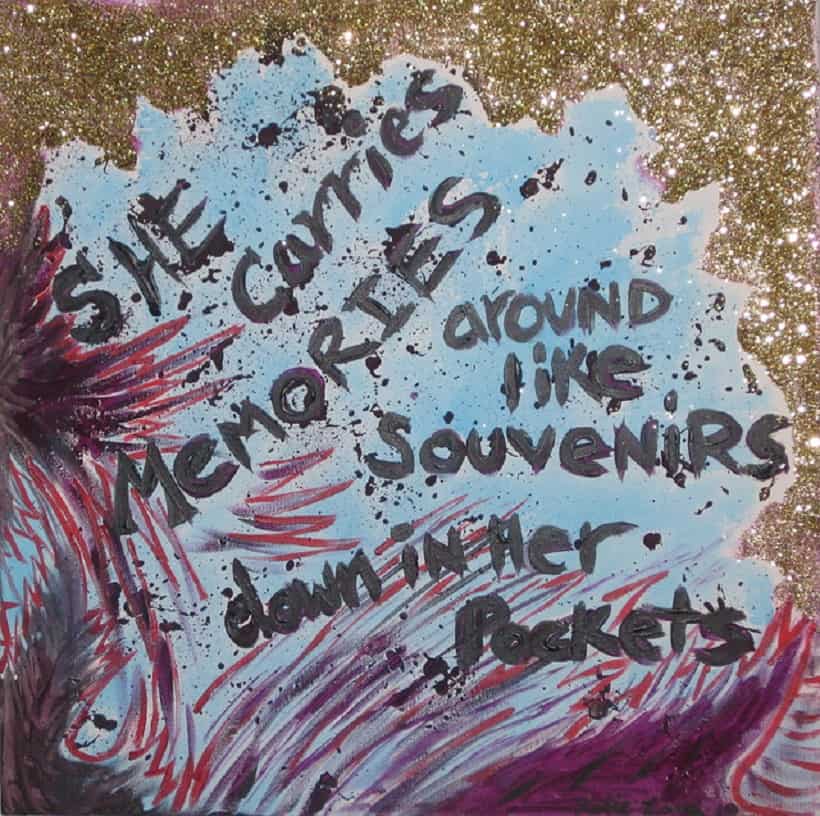 SHE
carries
MEMORIES
around
like
SouveniRs
down in Her
Pockets